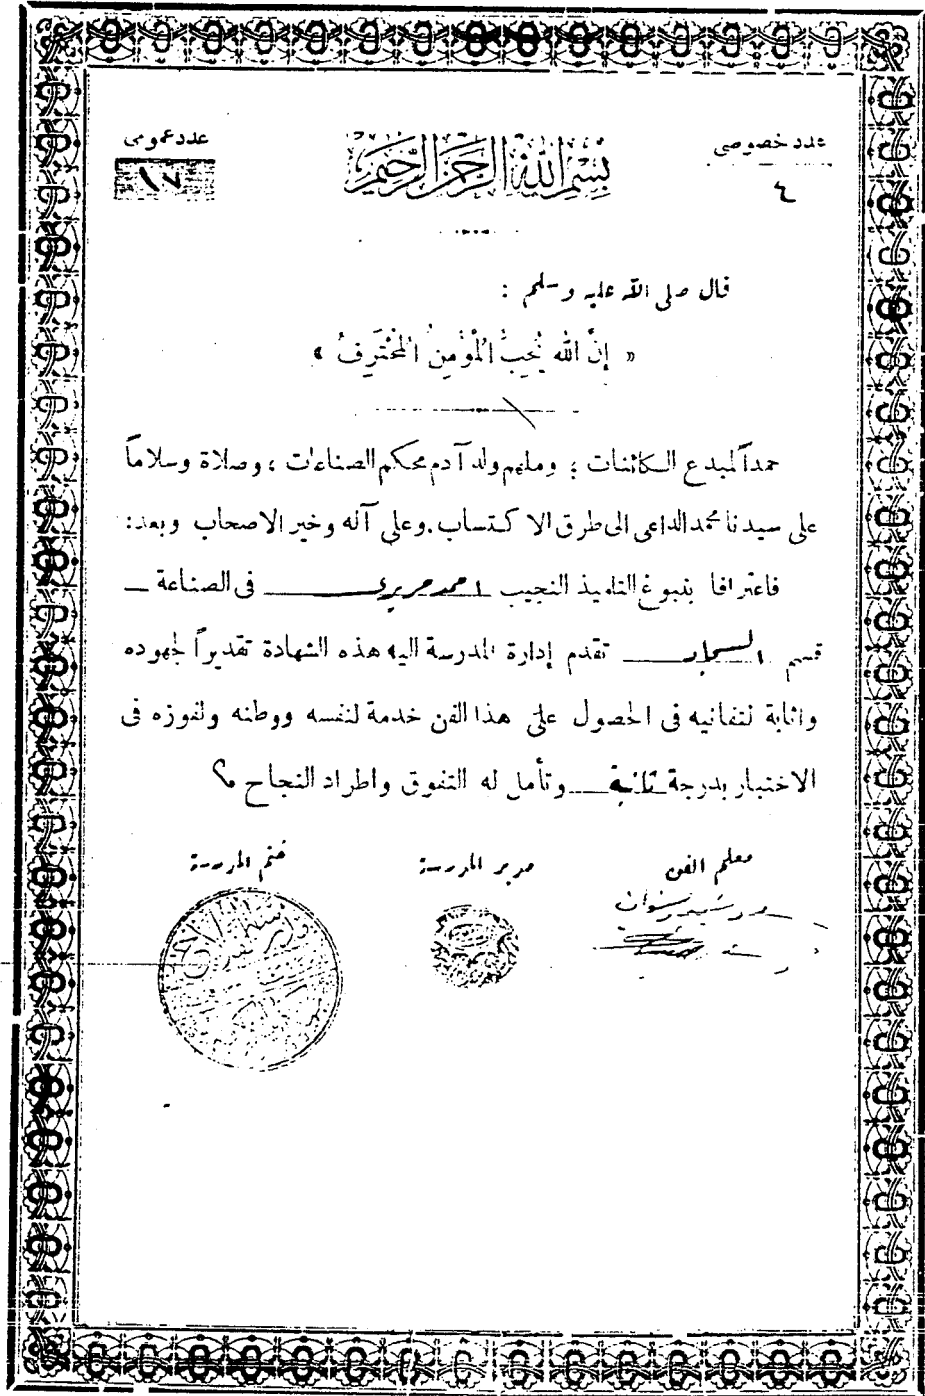 عدد خصوصي
٤
بسم الله الرحمن الرحيم
عدد عمومي
١٧
قال صلى الله عليه وسلم :
« إِنَّ الله يُحِبُّ الْمُؤْمِنَ الْمُحْتَرِفَ »
حمداً لمبدع الكائنات ؛ وملهم ولد آدم محكم الصناعات ، وصلاة وسلاماً
على سيدنا محمد الداعى الى طرق الاكتساب . وعلى آله وخير الاصحاب وبعد :
فاعترافا بنبوغ التلميذ النجيب احمد حريرى فى الصناعة
قسم السجاد تقدم إدارة المدرسة اليه هذه الشهادة تقديراً لجهوده
واثابة لتفانيه فى الحصول على هذا الفن خدمة لنفسه ووطنه ولفوزه فى
الاختبار بدرجة ثانية وتأمل له التفوق واطراد النجاح
معلم الفن
مدير المدرسة
ختم المدرسة